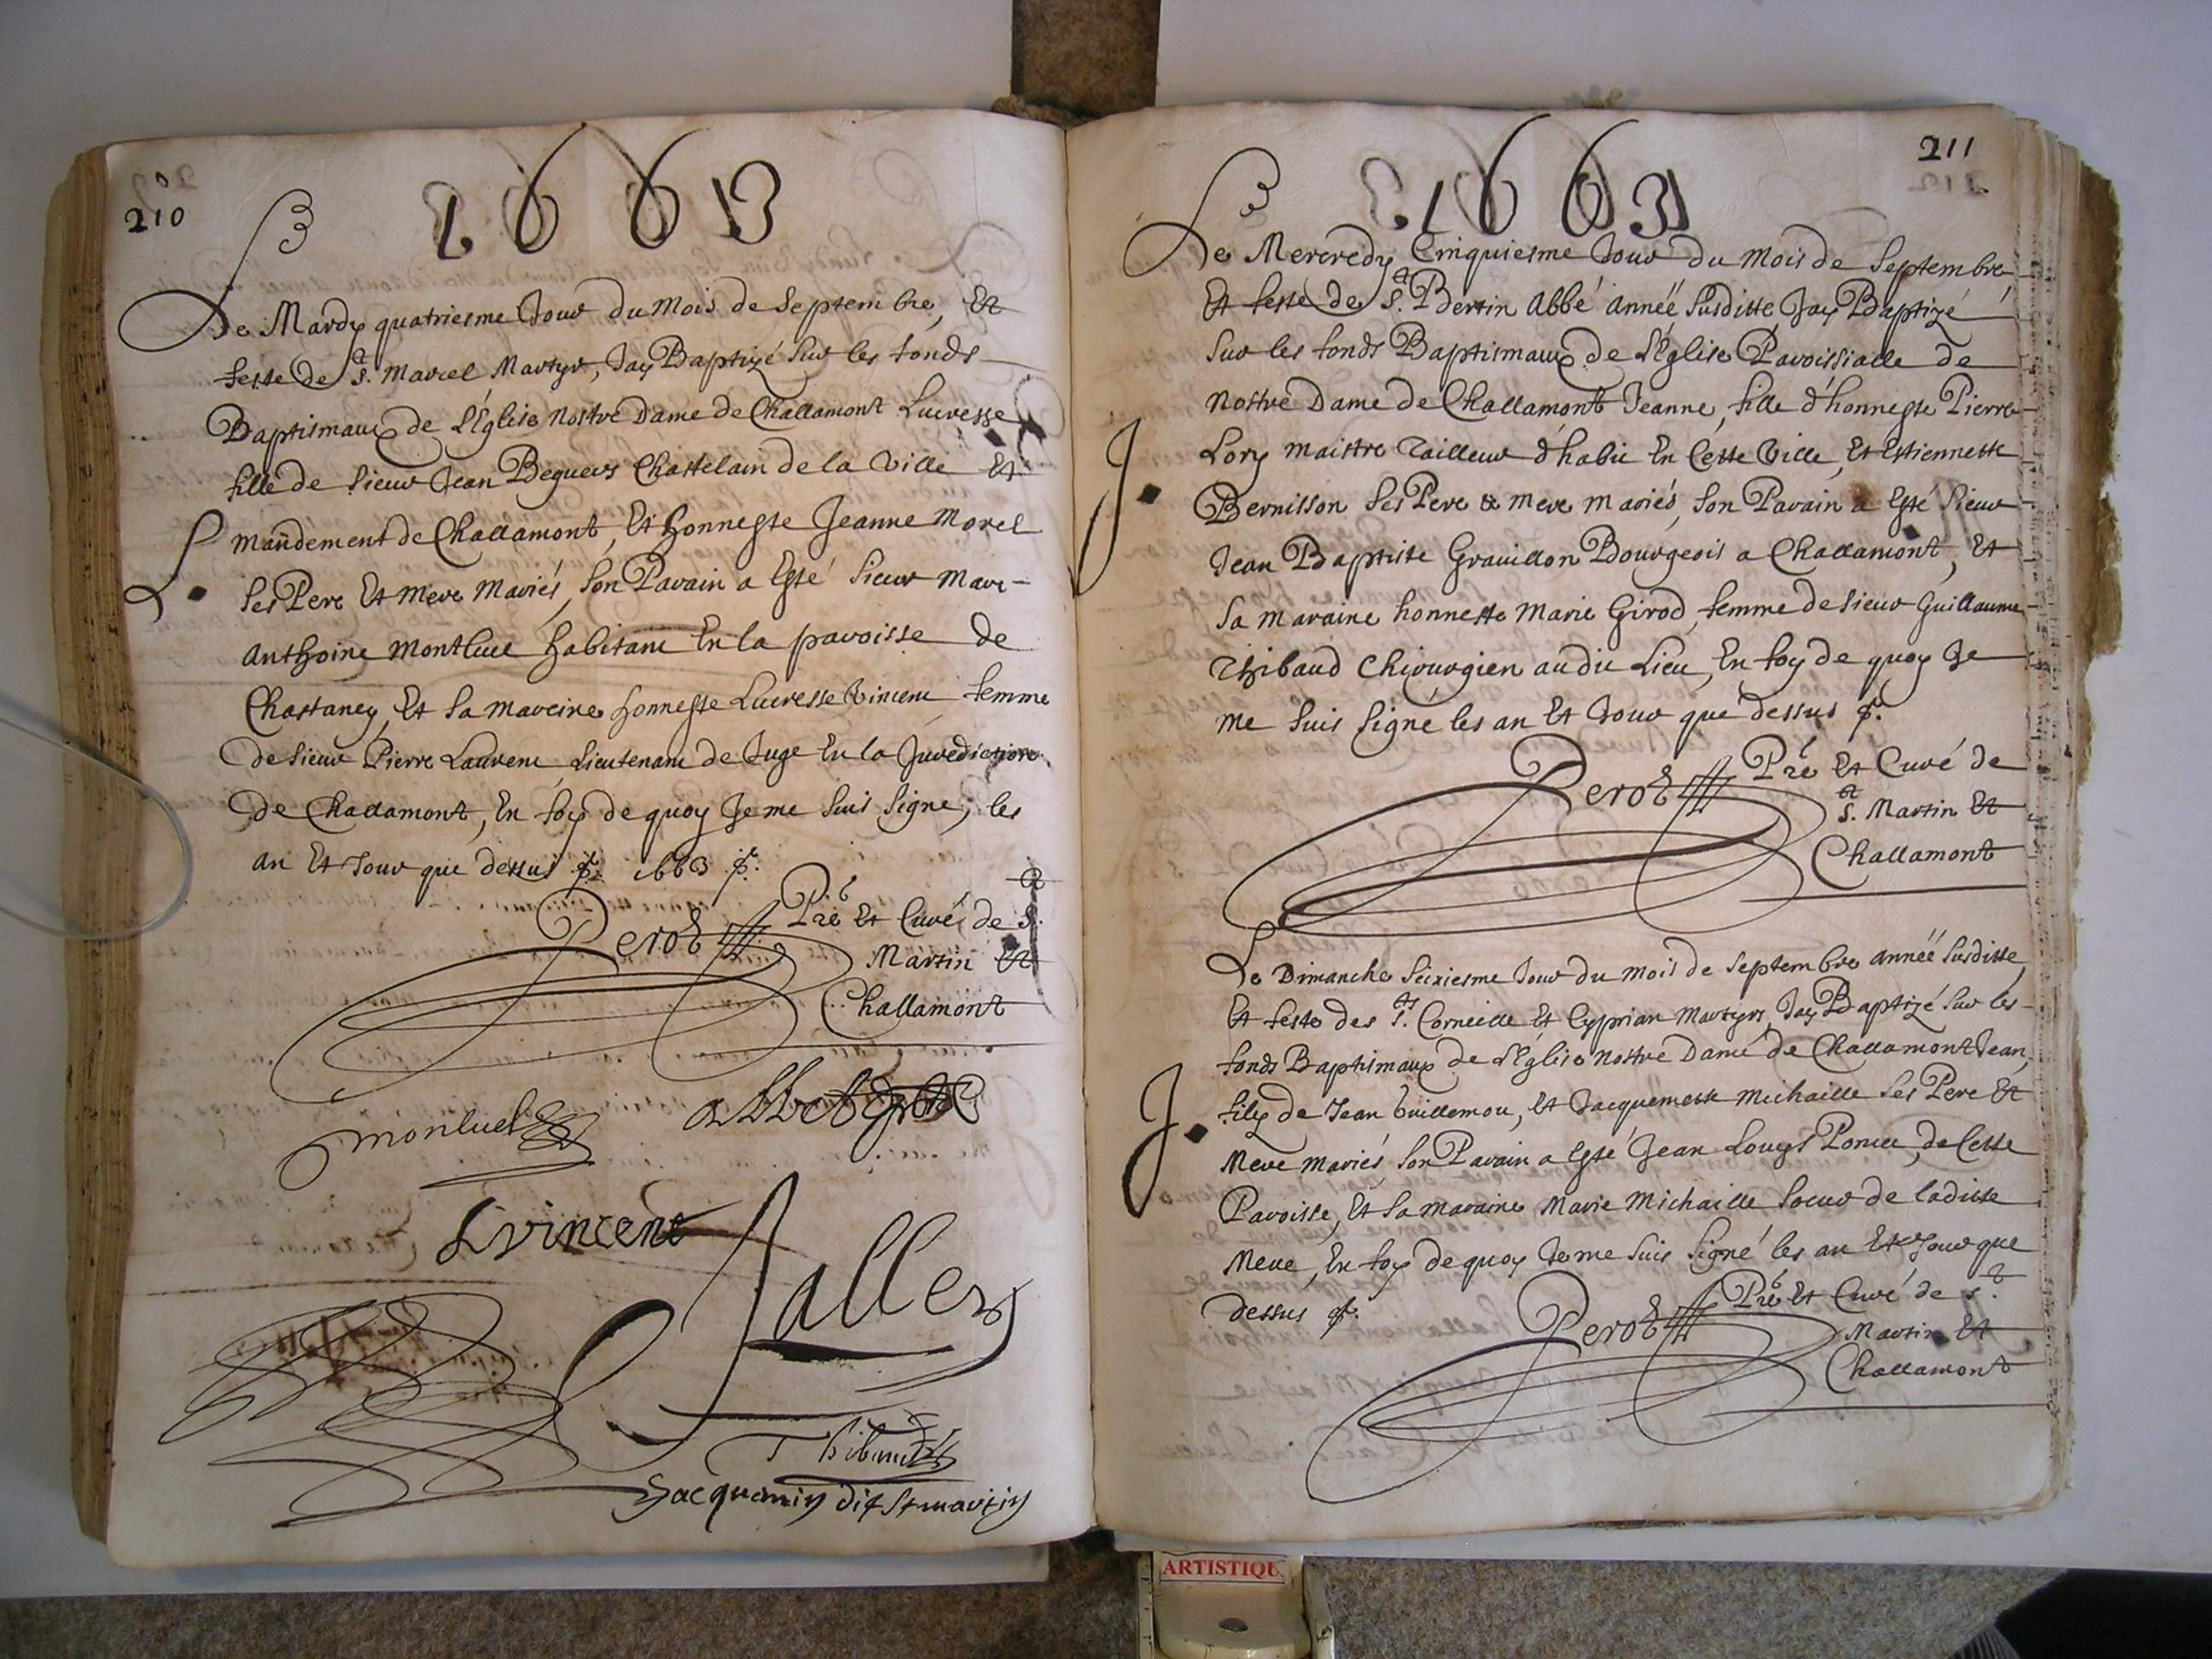 210
1663
Le Mardy quatriesme Jour du Mois de Septembre, Et
feste de St. Marcel Martyr, Jay Baptizé Sur les fonds
Baptismaux de L'Eglise Nostre Dame de Challamont Lucresse
fille de Sieur Jean Beguers Chastelain de la Ville Et
L. mandement de Challamont, Et honneste Jeanne Morel
Ses Pere Et Mere Mariés, Son Parain a Esté Sieur Marc-
Anthoine Montluel habitant En la paroisse de
Chastaney, Et Sa Mareine honneste Lucresse Vincent femme
de Sieur Pierre Laurent Lieutenant de Juge En la Juredictione
de Challamont, En foy de quoy Je me Suis Signé, les
an Et Jour que dessus 1663
Perot Pre Et Curé de St.
Martin Et
Challamont
monluel
Lvincent
Jallery
Thibaud
Jacquemin dit St martin
211
1663
Le Mercredy Cinquiesme Jour du Mois de Septembre
Et feste de St. Bertin Abbé année Susditte Jay Baptizé
Sur les fonds Baptismaux de L'Eglise Paroissialle de
Nostre Dame de Challamont Jeanne, fille d'honneste Pierre
J. Lory maistre Tailleur d'habit En Cette Ville, Et Estiennette
Bernisson Ses Pere & mere mariés, Son Parain a Esté Sieur
Jean Baptiste Grauillon Bourgeois a Challamont, Et
Sa maraine honneste Marie Girod, femme de Sieur Guillaume
Thibaud Chirurgien au dit Lieu, En foy de quoy Je
me Suis Signé les an Et Jour que dessus
Perot Pre Et Curé de
St. Martin Et
Challamont
Le Dimanche Seiziesme Jour du mois de Septembre année Susditte,
Et feste des Sts. Corneille Et Cyprian Martyrs, Jay Baptizé Sur les
fonds Baptismaux de L'Eglise Nostre Dame de Challamont Jean,
J. filz de Jean Guillemon, Et Jacquemette Michaille Ses Pere Et
Mere mariés Son Parain a Esté Jean Louys Poncet, de Cette
Paroisse, Et Sa maraine Marie Michaille Soeur de laditte
Mere, En foy de quoy Je me Suis Signé les an Et Jour que
dessus
Perot Pre Et Curé de St.
Martin Et
Challamont
ARTISTIQU